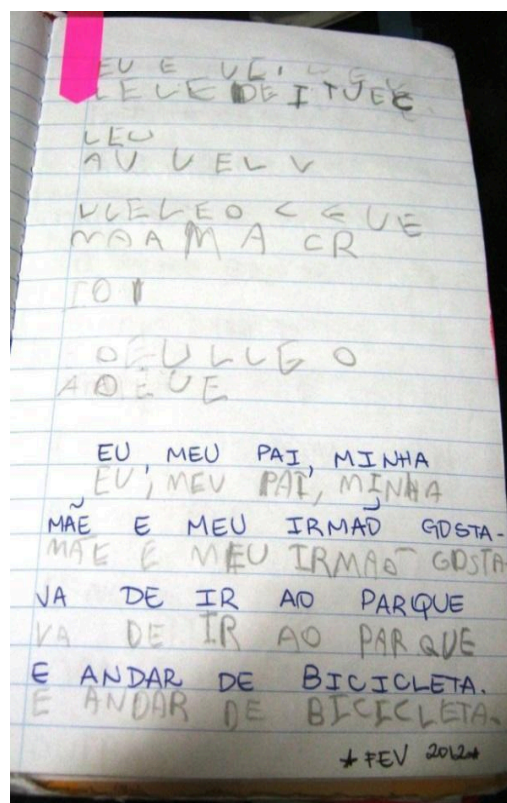 EU E UE, L E V
LELE DE I TUEC
LEU
AU U EL V
ULELEO C C UE
MAA M A CR
IO I
OEULLEO
AOEUE
EU, MEU PAI, MINHA
EU, MEU PAI, MINHA
MÃE E MEU IRMÃO GOSTA-
MÃE E MEU IRMAO GOSTA
VA DE IR AO PARQUE
VA DE IR AO PARQUE
E ANDAR DE BICICLETA.
E ANDAR DE BICICLETA.
* FEV 2012 *